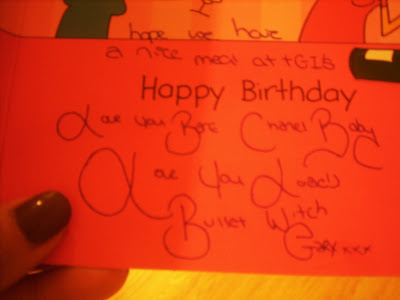 hope we have
a nice meal at tGIs
Happy Birthday
Love you Bene Chanel Baby
Love You Loads
Bullet Witch
Gaz xxxx